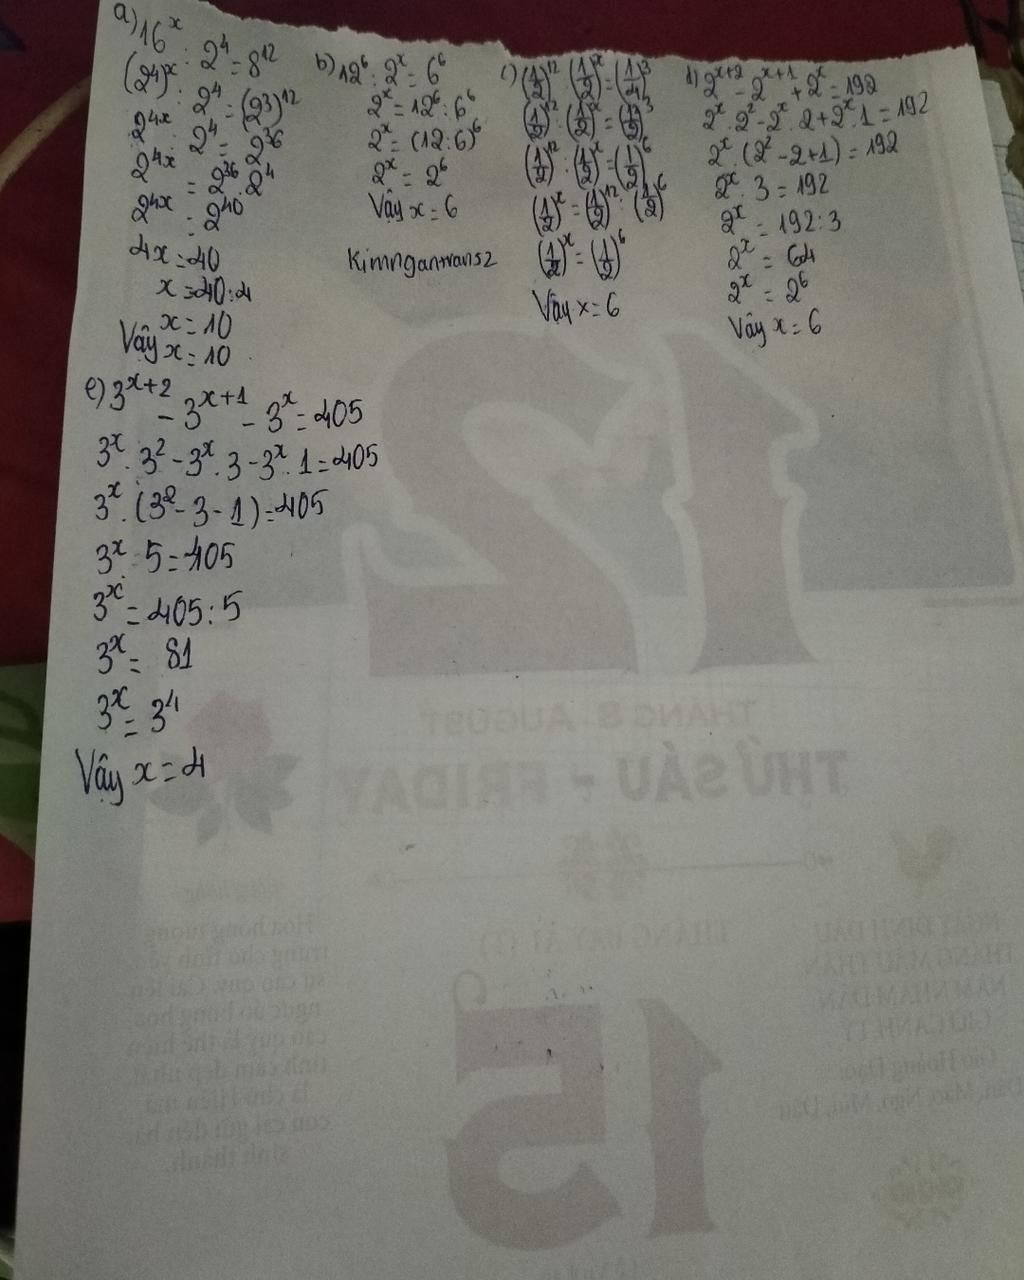 a) 16^x : 2^4 = 8^12
(2^4)^x : 2^4 = (2^3)^12
2^4x : 2^4 = 2^36
2^4x = 2^36 . 2^4
2^4x = 2^40
4x = 40
x = 40 : 4
x = 10
Vậy x = 10
b) 12^6 : 2^x = 6^6
2^x = 12^6 : 6^6
2^x = (12 : 6)^6
2^x = 2^6
Vậy x = 6
Kimngantrans2
c) (1/2)^12 : (1/2)^x = (1/4)^3
(1/2)^12 : (1/2)^x = (1/2^2)^3
(1/2)^12 : (1/2)^x = (1/2)^6
(1/2)^x = (1/2)^12 : (1/2)^6
(1/2)^x = (1/2)^6
Vậy x = 6
d) 2^x+2 - 2^x+1 + 2^x = 192
2^x . 2^2 - 2^x . 2 + 2^x . 1 = 192
2^x . (2^2 - 2 + 1) = 192
2^x . 3 = 192
2^x = 192 : 3
2^x = 64
2^x = 2^6
Vậy x = 6
e) 3^x+2 - 3^x+1 - 3^x = 405
3^x . 3^2 - 3^x . 3 - 3^x . 1 = 405
3^x . (3^2 - 3 - 1) = 405
3^x . 5 = 405
3^x = 405 : 5
3^x = 81
3^x = 3^4
Vậy x = 4
12
THÁNG 8 AUGUST
THỨ SÁU - FRIDAY
THÁNG BẢY ẤT (T)
15
Hoa hồng tượng
NGÀY ĐINH DẬU
THÁNG MẬU THÂN
NĂM NHÂM DẦN
Giờ Hoàng Đạo